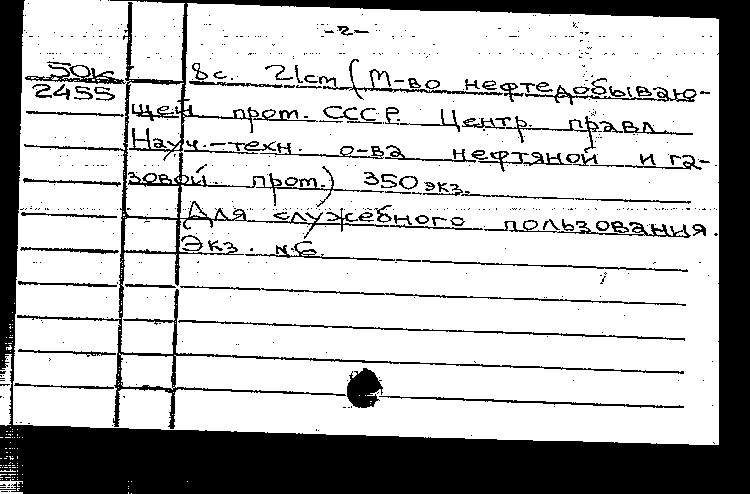 -2-
50к 8с. 21cm (М-во нефтедобываю-
2455 щей прот. СССР. Центр. правл.
Науч.-техн. о-ва нефтяной и га-
зовой прот.) 350 экз.
Для служебного пользования.
Экз. №6